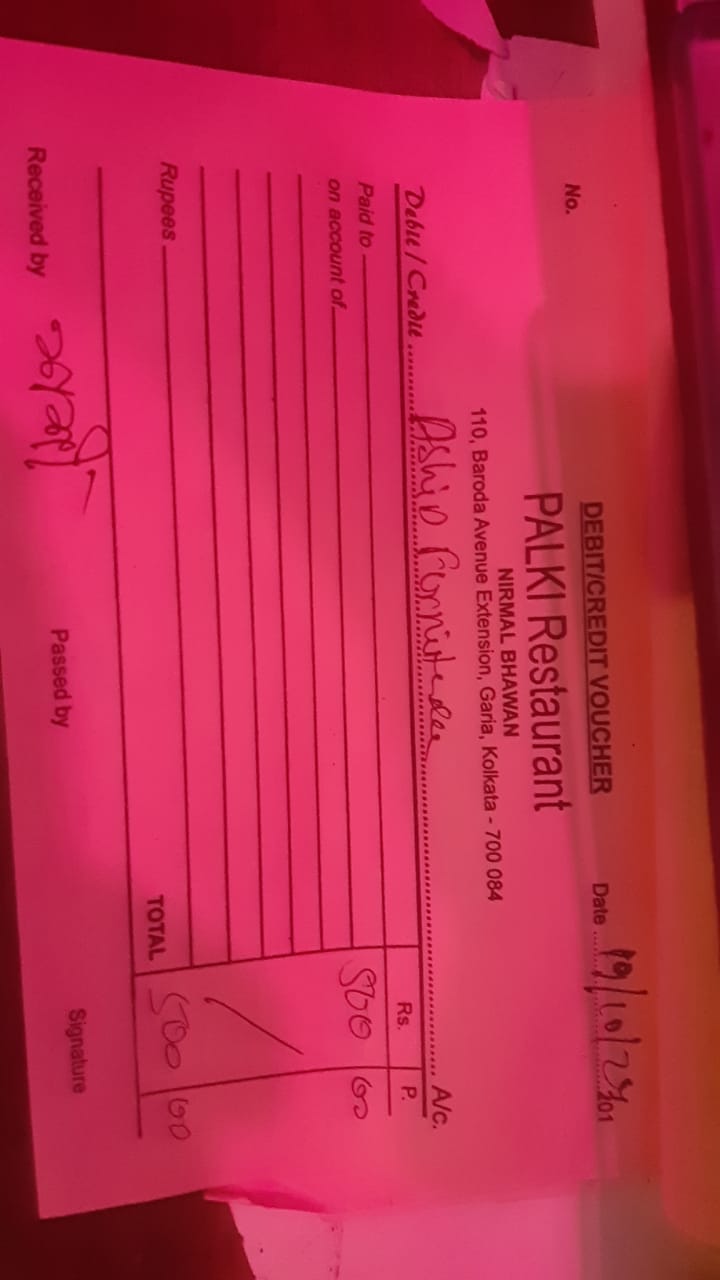 DEBIT/CREDIT VOUCHER
No. Date 19/10/24 201
PALKI Restaurant
NIRMAL BHAWAN
110, Baroda Avenue Extension, Garia, Kolkata - 700 084
Debit / Credit Ashis A/c.
Rs. P.
Paid to 500 00
on account of
Rupees TOTAL 500 00
Received by Passed by Signature